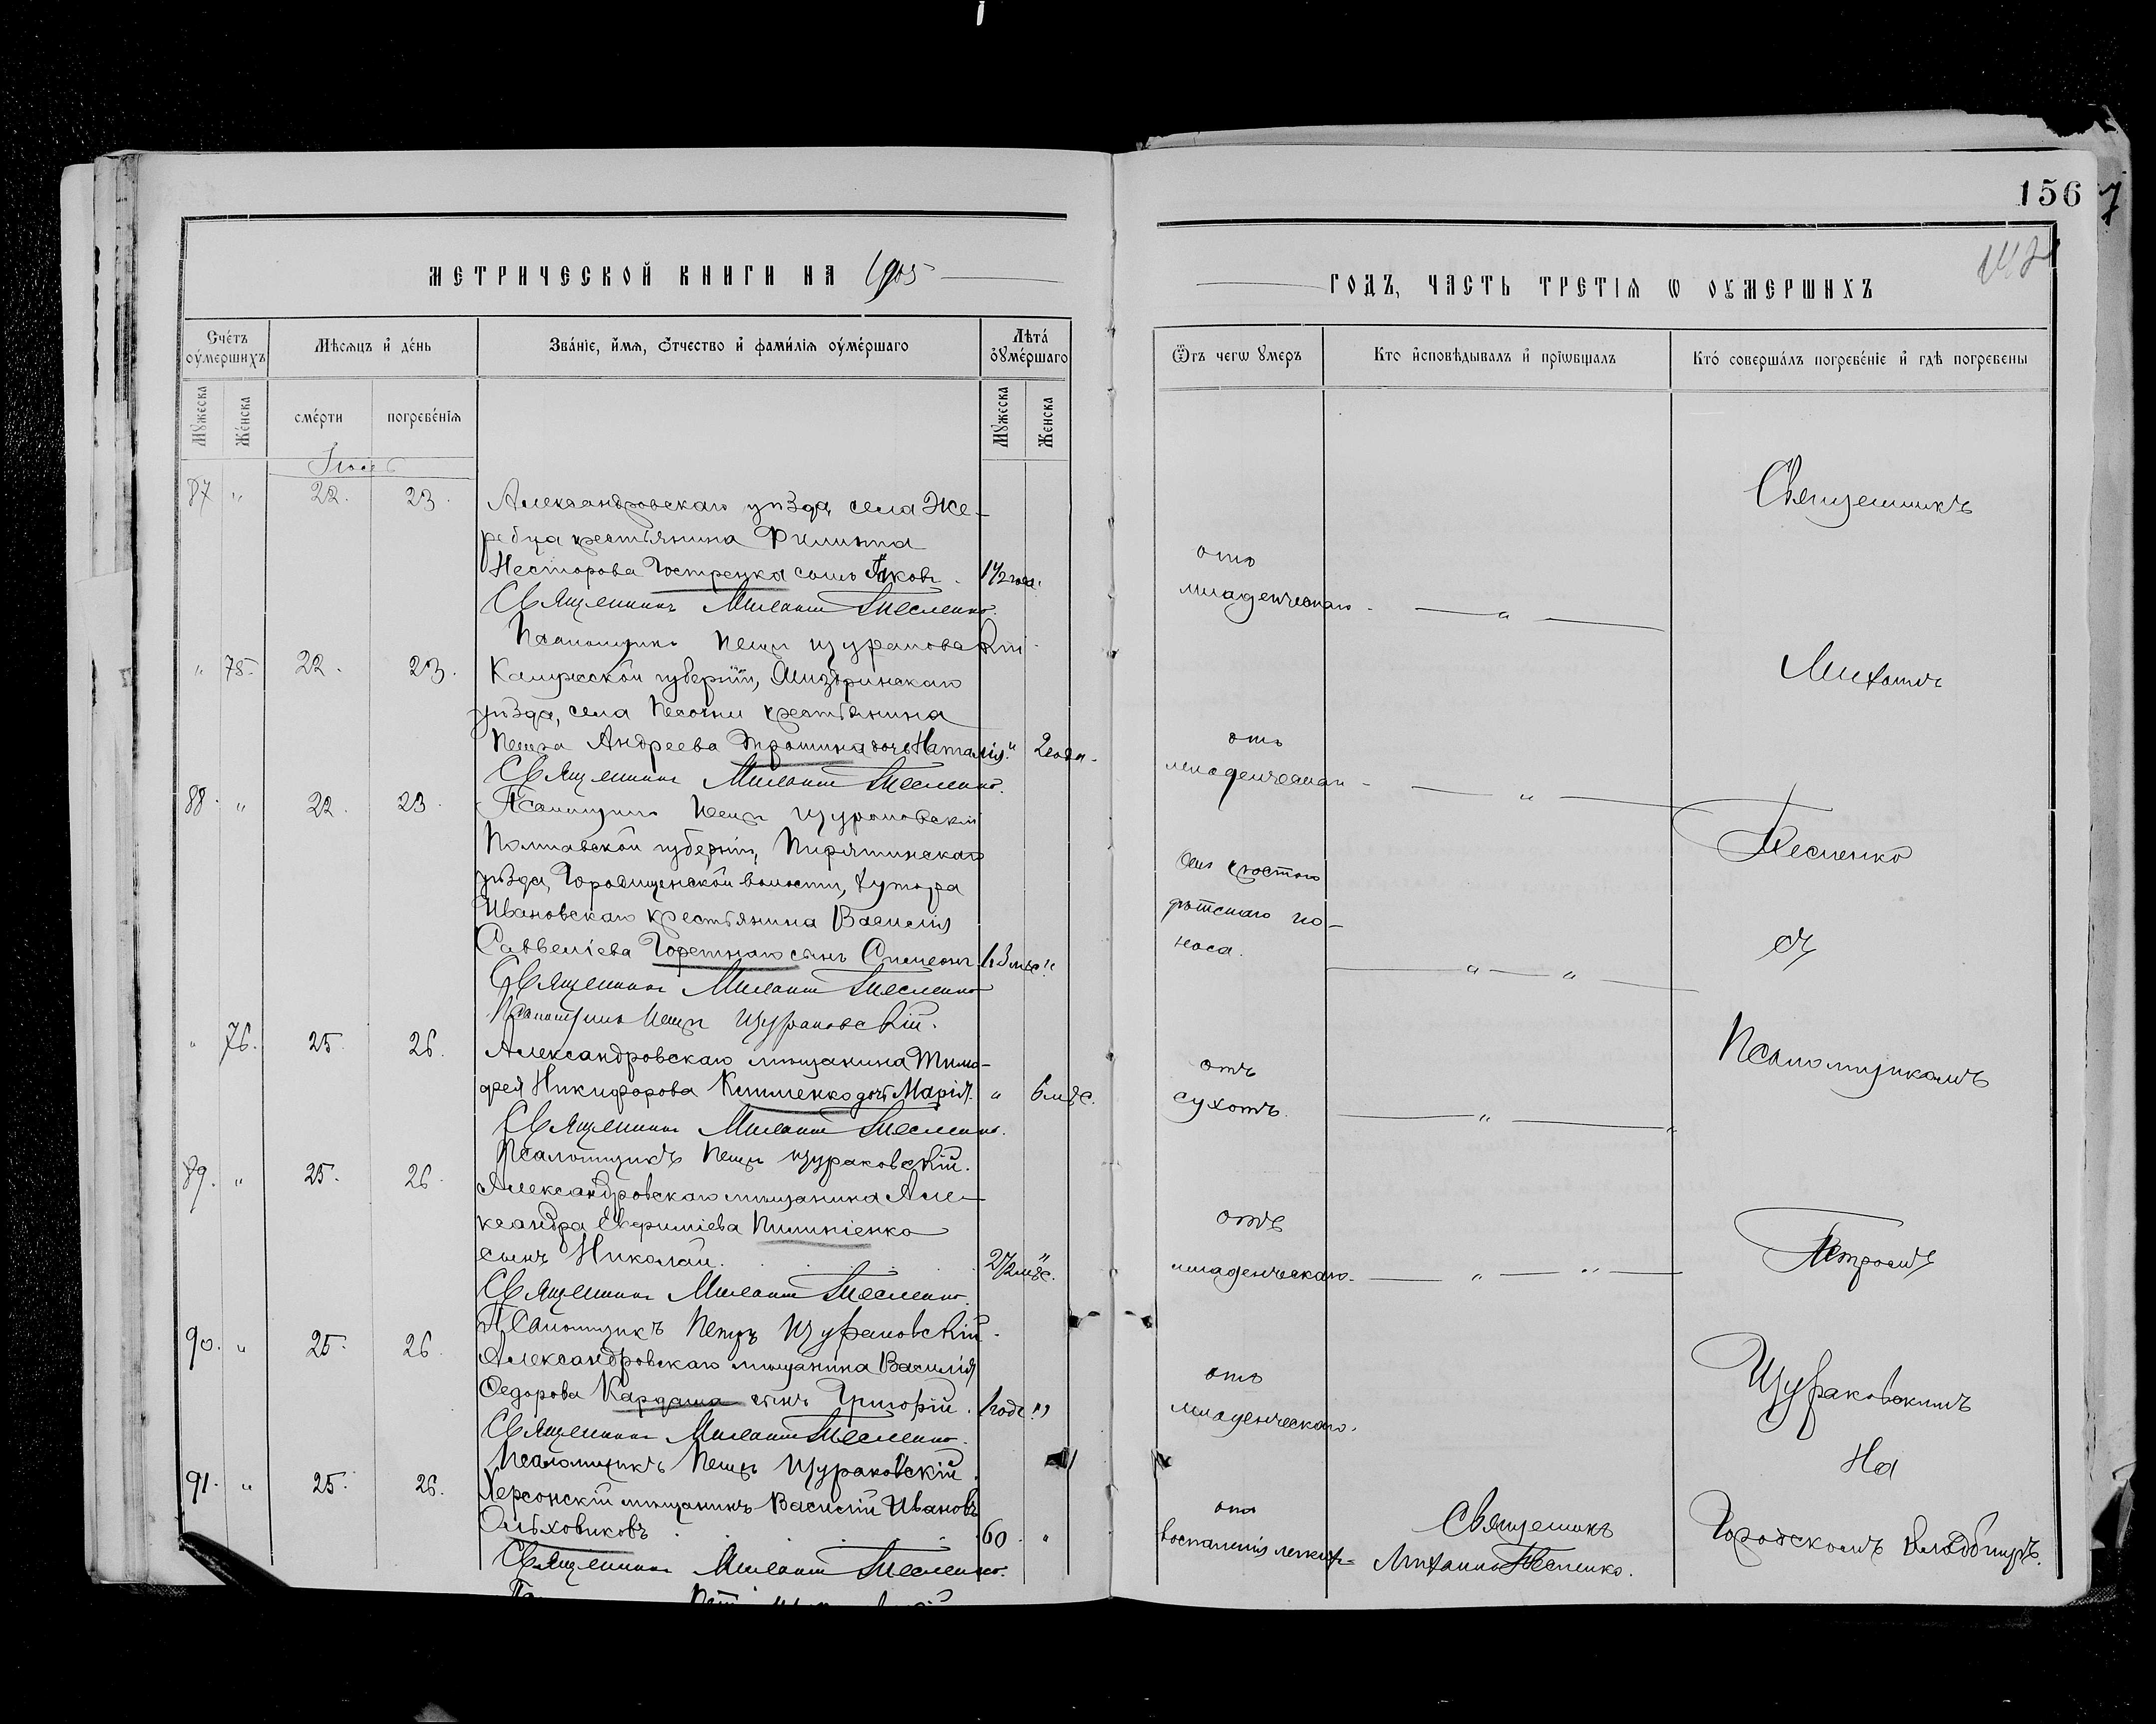 156
МЕТРИЧЕСКОЙ КНИГИ НА 1905
ГОДЪ, ЧАСТЬ ТРЕТІЯ Ѡ ОУМЕРШИХЪ
Счéтъ оумéршихъ
Мѣсяцъ и дéнь
Звáніе, имя, óтчество и фамилія оумéршаго
Лѣтá оумéршаго
Мужеска
Женска
смéрти
погребéнія
Мужеска
Женска
Ѿ чегѡ умеръ
Кто исповѣдывалъ и пріѡбщалъ
Ктó совершáлъ погребéніе и гдѣ погребены
87 " 22. 23.
Александровскаго уѣзда села Же-
ребца крестьянина Филиппа
Несторова сынъ Яковъ. 1 1/2 года.
отъ
младенческаго
Священникъ Михаилъ Тесленко.
Псаломщикъ Петръ Щураковскій.
" 75. 22. 23.
Калужской губерніи, Жиздринскаго
уѣзда, села Песочни крестьянина
Петра Андреева Трошина дочь Наталія. " 2 года.
отъ
младенческаго
Священникъ Михаилъ Тесленко.
88. " 22. 23.
Псаломщикъ Петръ Щураковскій
Полтавской губерніи, Пирятинскаго
уѣзда, Городищенской волости, хутора
Ивановскаго крестьянина Василія
Савелліева сынъ Симеонъ 1.3 мѣс. "
отъ простого
дѣтскаго по-
носа.
Священникъ Михаилъ Тесленко
Псаломщикъ Петръ Щураковскій.
" 76. 25. 26.
Александровскаго мѣщанина Тимо-
фея Никифорова Клименко дочь Марія. " 6 мѣс.
отъ
сухотъ.
Священникъ Михаилъ Тесленко.
Псаломщикъ Петръ Щураковскій.
89. " 25. 26.
Александровскаго мѣщанина Але-
ксандра Евфиміева
сынъ Николай. 2 1/2 мѣс. "
отъ
младенческаго.
Священникъ Михаилъ Тесленко.
Псаломщикъ Петръ Щураковскій.
90. " 25. 26.
Александровскаго мѣщанина Василія
Федорова Кардаша сынъ Григорій. 1 годъ "
отъ
младенческаго.
Священникъ Михаилъ Тесленко.
Псаломщикъ Петръ Щураковскій.
91. " 25. 26.
Херсонскій мѣщанинъ Василій Ивановъ
Ольховиковъ 60. "
отъ
воспаленія легкихъ
Священникъ
Михаилъ Тесленко.
Священникъ Михаилъ Тесленко.
Священникъ
Михаилъ
Тесленко
съ
Псаломщикомъ
Петромъ
Щураковскимъ
На
Городскомъ кладбищѣ.